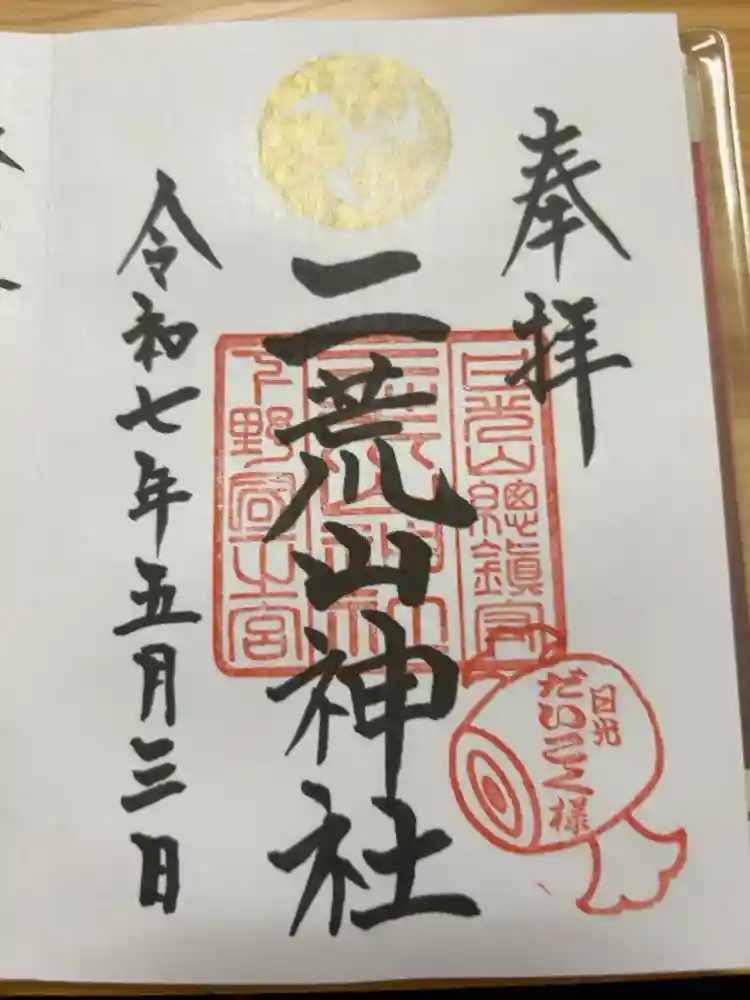 奉拝
二荒山神社
令和七年五月三日
日光山總鎮守
二荒山神社
下野國一宮
日光
だいこく様